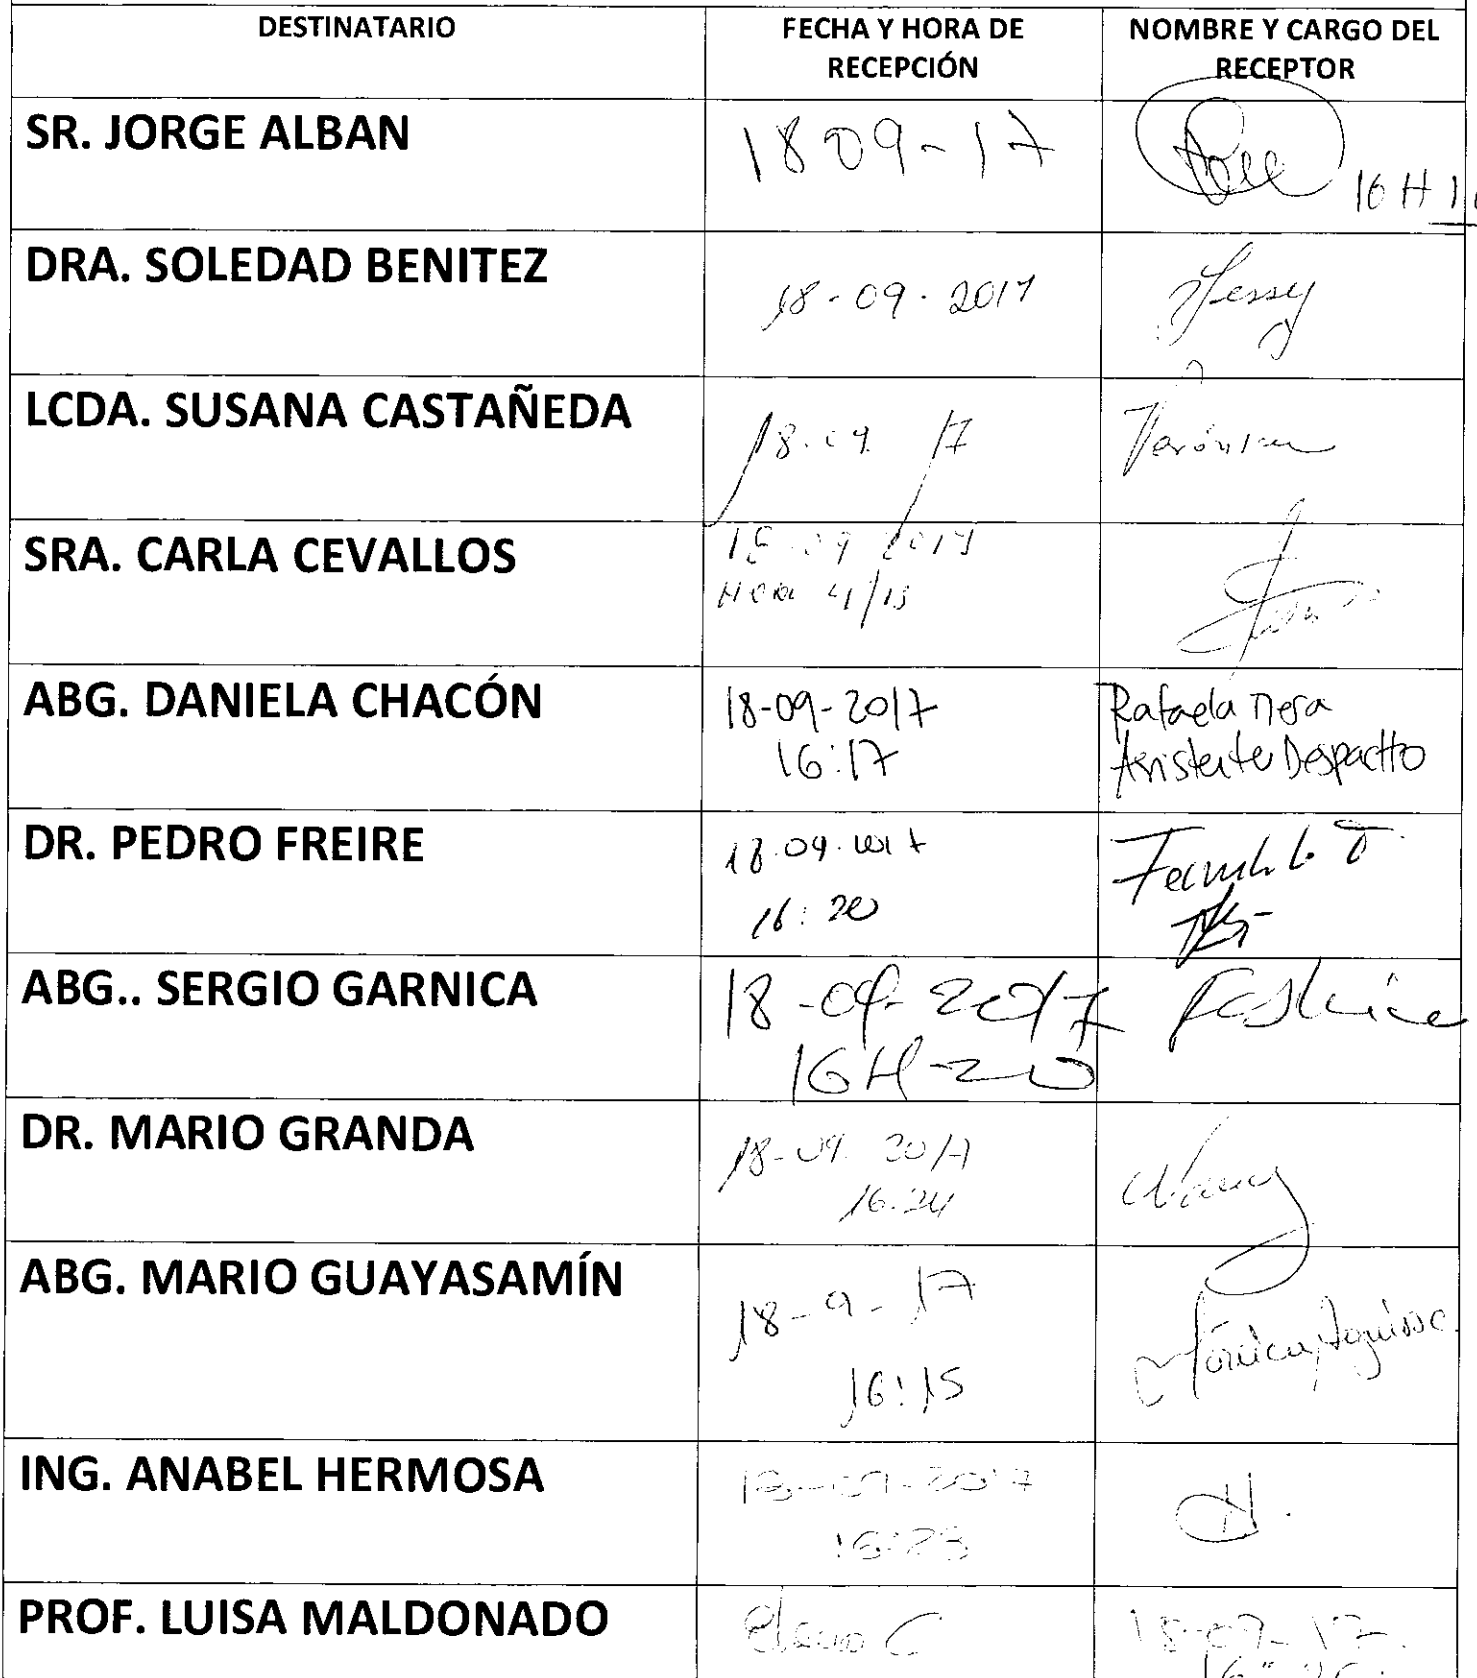 DESTINATARIO
FECHA Y HORA DE
RECEPCIÓN
NOMBRE Y CARGO DEL
RECEPTOR
SR. JORGE ALBAN
18 09-17
16 H
DRA. SOLEDAD BENITEZ
18-09-2017
Jessy
LCDA. SUSANA CASTAÑEDA
18-09 17
Verónica
SRA. CARLA CEVALLOS
09 2017
Hora 4/15
ABG. DANIELA CHACÓN
18-09-2017
16:17
Rafaela Mesa
Asistente Despacho
DR. PEDRO FREIRE
18.09.2017
16:20
ABG.. SERGIO GARNICA
18-09-2017
16H-20
DR. MARIO GRANDA
18-09-2017
16:24
Nancy
ABG. MARIO GUAYASAMÍN
18-9-17
16:15
Mónica
ING. ANABEL HERMOSA
18-09-2017
16:28
H.
PROF. LUISA MALDONADO
C
18-09-17